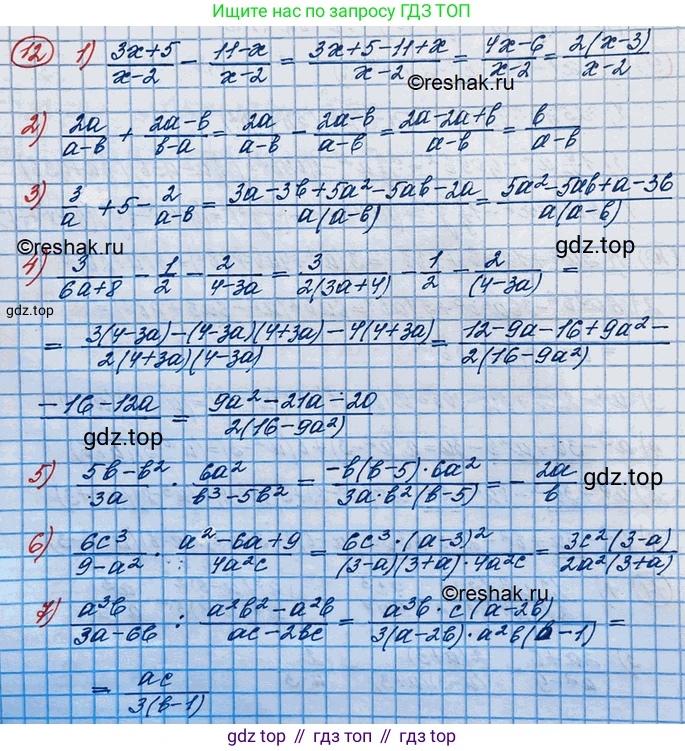 Ищите нас по запросу ГДЗ ТОП
12 1) (3x+5)/(x-2) - (11-x)/(x-2) = (3x+5-11+x)/(x-2) = (4x-6)/(x-2) = 2(x-3)/(x-2)
©reshak.ru
2) 2a/(a-b) + (2a-b)/(b-a) = 2a/(a-b) - (2a-b)/(a-b) = (2a-2a+b)/(a-b) = b/(a-b)
3) 3/a + 5 - 2/(a-b) = (3a-3b+5a²-5ab-2a)/(a(a-b)) = (5a²-5ab+a-3b)/(a(a-b))
©reshak.ru
gdz.top
4) 3/(6a+8) - 1/2 - 2/(4-3a) = 3/(2(3a+4)) - 1/2 - 2/(4-3a) =
gdz.top
= (3(4-3a)-(4-3a)(4+3a)-4(4+3a))/(2(4+3a)(4-3a)) = (12-9a-16+9a²-
-16-12a)/(2(16-9a²)) = (9a²-21a-20)/(2(16-9a²))
gdz.top
5) (5b-b²)/(3a) · 6a²/(b³-5b²) = (-b(b-5)·6a²)/(3a·b²(b-5)) = -2a/b
gdz.top
6) 6c³/(9-a²) · (a²-6a+9)/(4a²c) = (6c³·(a-3)²)/((3-a)(3+a)·4a²c) = 3c²(3-a)/(2a²(3+a))
©reshak.ru
7) a³b/(3a-6b) : (a²b²-a²b)/(ac-2bc) = (a³b·c(a-2b))/(3(a-2b)·a²b(b-1)) =
= ac/(3(b-1))
gdz.top // гдз топ // гдз.топ